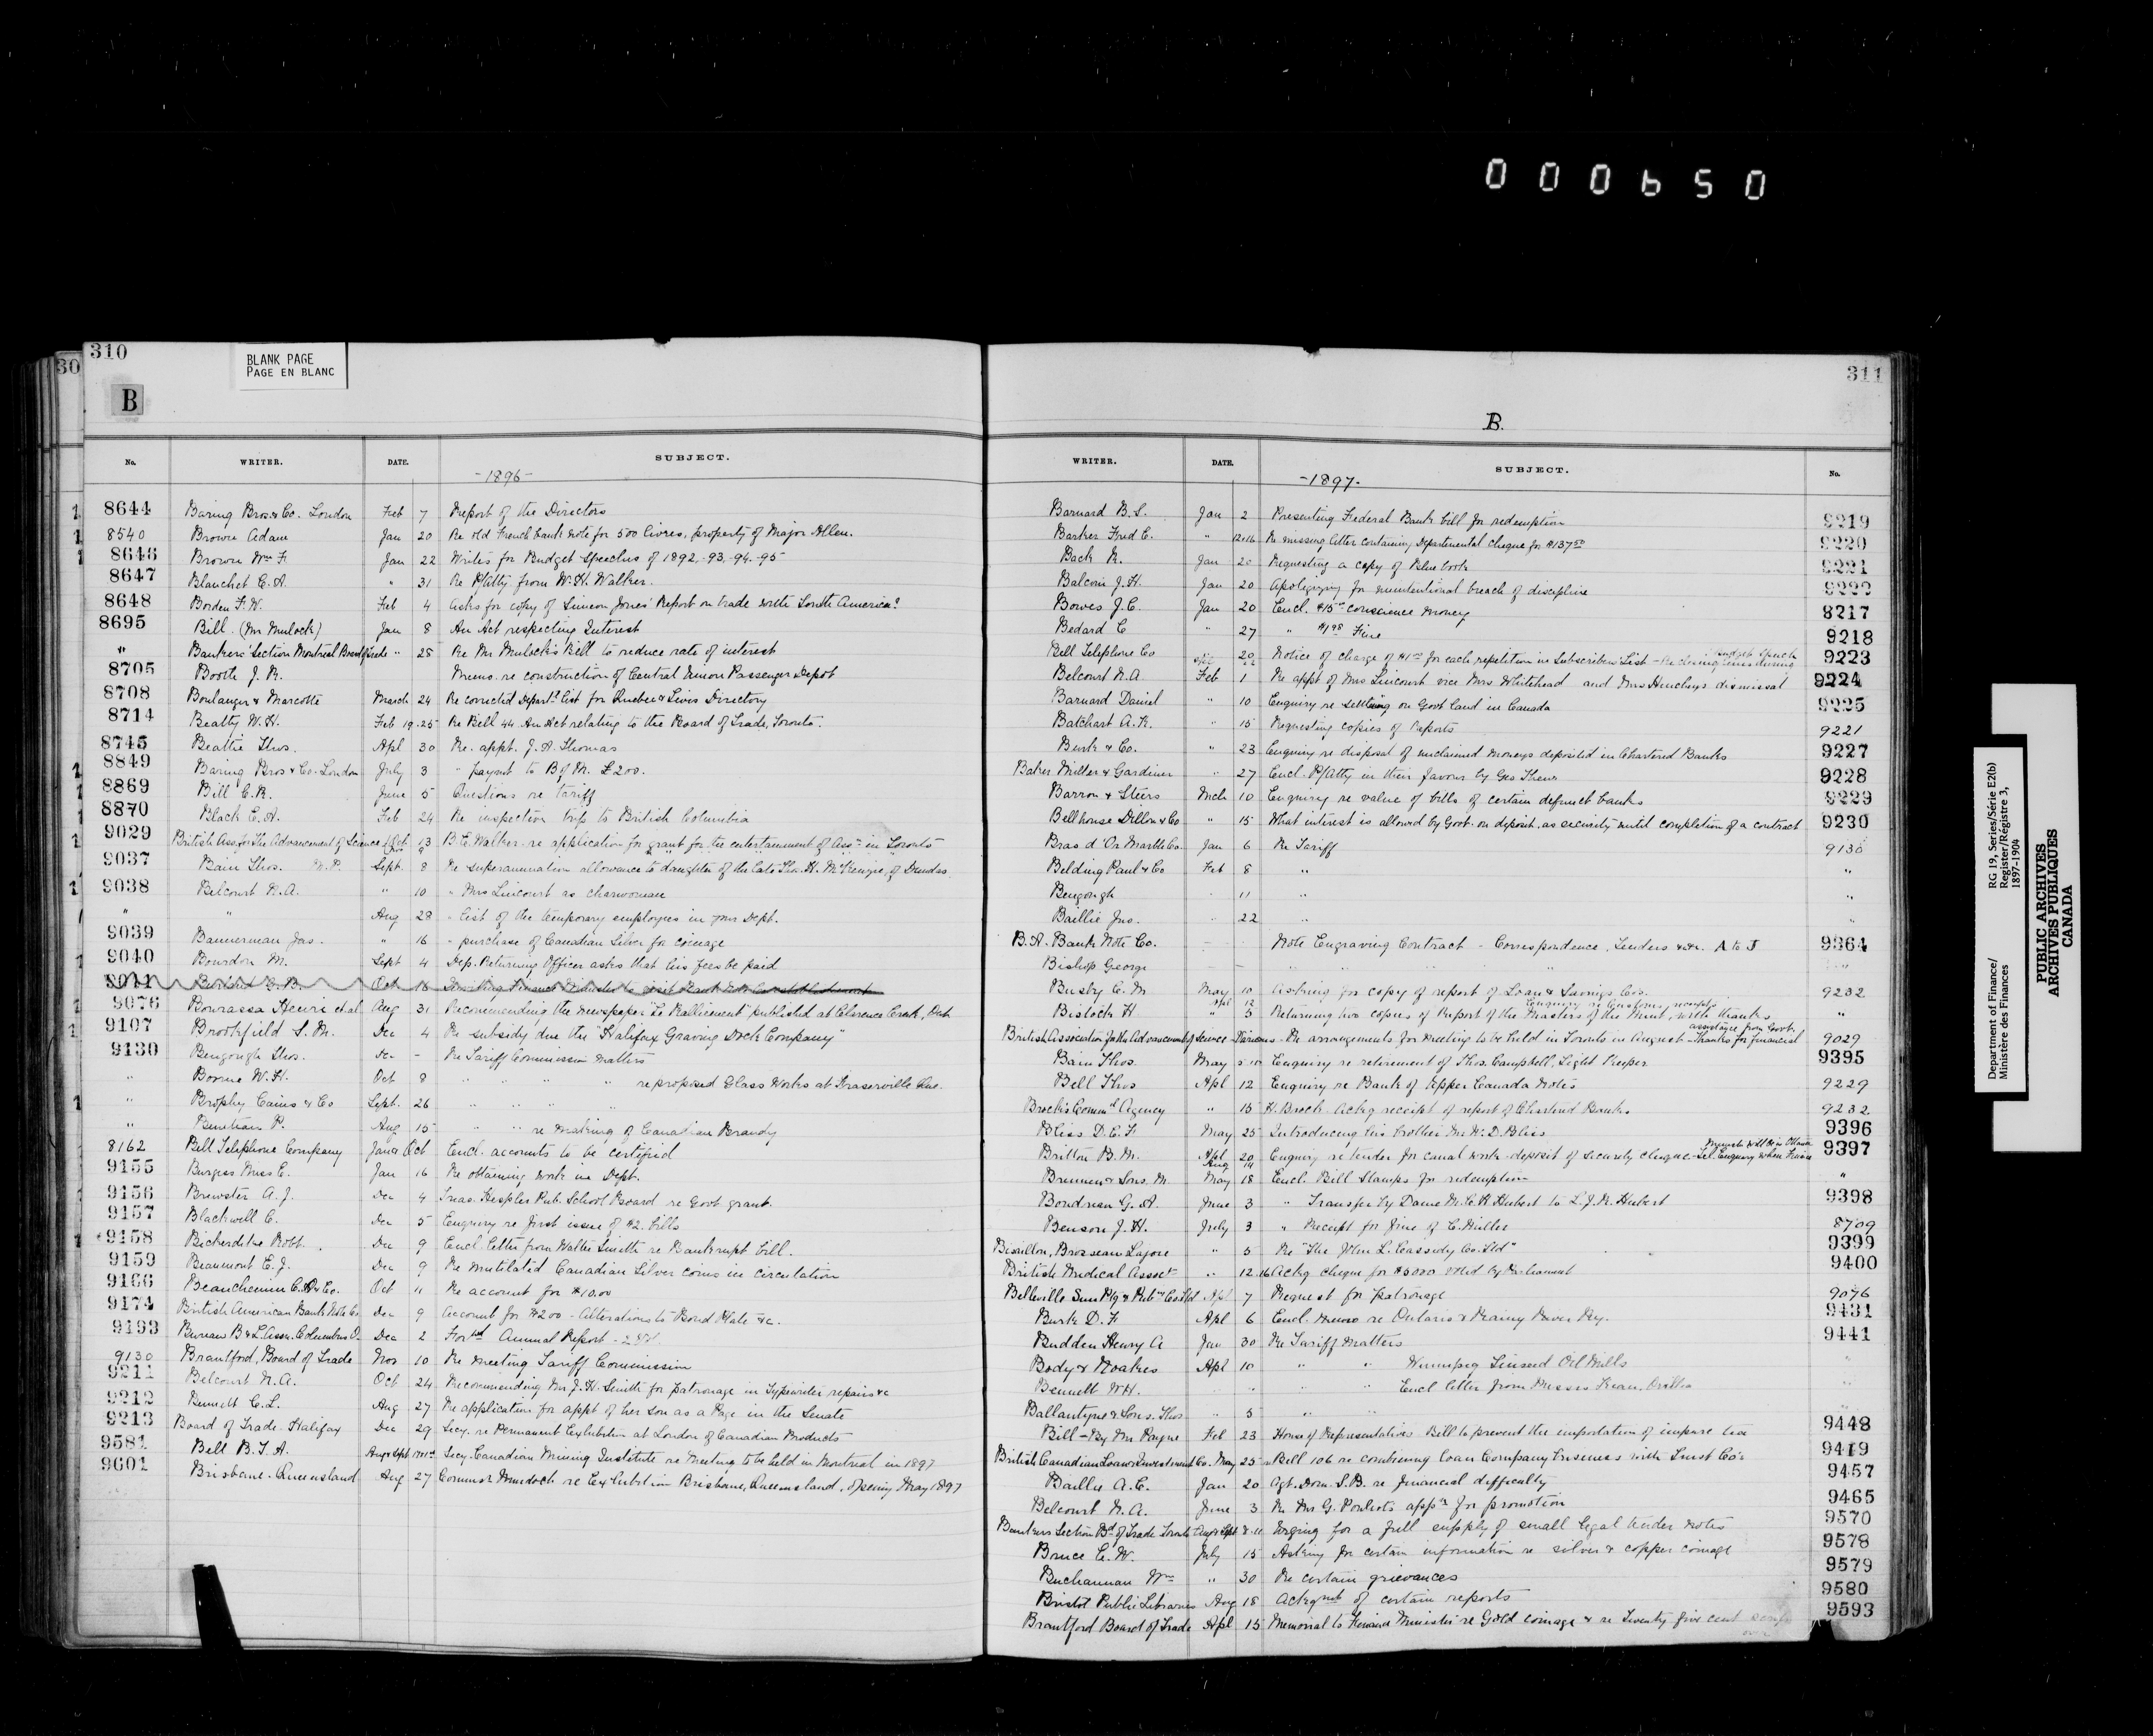 000650
310
BLANK PAGE
PAGE EN BLANC
30
B
No. WRITER. DATE. SUBJECT.
-1896-
8644 Baring Bros. & Co. London Feb 7 Report of the Directors
8540 Brown Adam Jan 20 Re old French bank note for 500 livres, property of Major Allen.
8646 Brown Wm F. Jan 22 Writes for Budget Speeches of 1892,-93,-94,-95
8647 Blanchet C. A. " 31 Re P/Atty. from W. H. Walker.
8648 Borden F. W. Feb 4 Asks for copy of Simeon Jones' Report on trade with South America?
8695 Bill. (Mr Mulock) Jan 8 An Act respecting Interest
" Bankers' Section Montreal Board of Trade " 28 Re Mr Mulock's Bill to reduce rate of interest
8705 Booth J. R. Memo. re construction of Central Union Passenger Depot
8708 Boulanger & Marcotte March 24 Re corrected Departl. list for Quebec & Levis Directory
8714 Beatty W. H. Feb 19.25 Re Bill 44 An Act relating to the Board of Trade, Toronto.
8745 Beattie Thos. Apl 30 Re. appt. J. A. Thomas
8849 Baring Bros & Co. London July 3 " paymt to B of M. £200.
8869 Bill C. R. June 5 Questions re tariff
8870 Black E. A. Feb 24 Re inspection trip to British Columbia
9029 British Ass. for the Advancement of Science Oct 13 B. E. Walker. re application for grant for the entertainment of Assn. in Toronto
9037 Bain Thos. M.P. Sept. 8 Re superannuation allowance to daughter of the late Thos. H. McKenzie, of Dundas.
9038 Belcourt N. A. " 10 " Mrs Lincourt as charwoman
" " Aug 28 " list of the temporary employees in your Dept.
9039 Bannerman Jas. " 16 " purchase of Canadian Silver for coinage
9040 Bourdon M. Sept 4 Dep. Returning Officer asks that his fees be paid
9041 Oct 16
9076 Bourassa Henri et al Aug 31 Recommending the newspaper "Le Ralliement" published at Clarence Creek, Ont.
9107 Brookfield S. M. Dec 4 Re subsidy due the "Halifax Graving Dock Company"
9130 Bengough Thos. Dec - Re Tariff Commission matters
" Boome W. H. Oct 8 " " " " re proposed Glass Works at Fraserville Que.
" Brophy Cains & Co Sept. 26 " " " "
" P. Aug 15 " " re making of Canadian Brandy
8162 Bell Telephone Company Jan & Oct Encl. accounts to be certified
9155 Burgess Miss E. Jan 16 Re obtaining work in Dept.
9156 Brewster A. J. Dec 4 Treas. Hespeler Pub. School Board re Govt grant.
9157 Blackwell C. Dec 5 Enquiry re first issue of $2. bills
9158 Bickerdike Robt. Dec 9 Encl. letter from Walter Smith re Bankrupt bill.
9159 Beaumont E. J. Dec 9 Re mutilated Canadian Silver coins in circulation
9166 Beauchemin C. O. & Co. Oct 11 Re account for $10.00
9174 British American Bank Note Co Dec 9 Account for $200 - Alterations to Bond Plate &c.
9193 Bureau B & L. Assn. Columbus O. Dec 2 For 1st Annual Report
9130 Brantford, Board of Trade Nov 10 Re meeting Tariff Commission
9211 Belcourt N. A. Oct 24 Recommending Mr J. H. Smith for patronage in Typewriter repairs &c
9212 Bennett C. L. Aug 27 Re application for appt of her son as a Page in the Senate
9213 Board of Trade. Halifax Dec 29 Secy. re Permanent Exhibition at London of Canadian Products
9581 Bell B. T. A. Aug & Sept Secy. Canadian Mining Institute re Meeting to be held in Montreal in 1897
9601 Brisbane. Queensland Aug 27 Commsr Murdoch re Exhibition Brisbane, Queensland, opening May 1897
311
B.
WRITER. DATE. SUBJECT. No.
-1897-
Barnard B. S. Jan 2 Presenting Federal Bank bill for redemption 9219
Barker Fred E. " 12&16 Re missing letter containing Departmental cheque for $137.50 9220
Back R. Jan 20 Requesting a copy of Blue book 9221
Balcom J. H. Jan 20 Apologizing for unintentional breach of discipline 9222
Bowes J. C. Jan 20 Encl. $15.00 conscience money 8217
Bedard C " 27 " Fine 9218
Bell Telephone Co " 20 Notice of charge of $1.00 for each repetition in Subscribers List - Re closing lines during Budget Speech 9223
Belcourt N. A Feb 1 Re appt of Mrs Lincourt vice Mrs Whitehead and Mrs Hinchey's dismissal 9224
Barnard Daniel " 10 Enquiry re settling on Govt land in Canada 9225
Batchart A. R. " 15 Requesting copies of Reports 9221
Burk & Co. " 23 Enquiry re disposal of unclaimed moneys deposited in Chartered Banks 9227
Baker Miller & Gardiner " 27 Encl. P/Atty in their favour by Geo 9228
Barron & Steers Mch 10 Enquiry re value of bills of certain defunct banks 9229
Bellhouse Dillon & Co " 15 What interest is allowed by Govt. on deposit, as security until completion of a contract 9230
Bras d'Or Marble Co. Jan 6 Re Tariff 9130
Belding Paul & Co Feb 8 " "
Bengough " 11 " "
Baillie Jno. " 22 " "
B. A. Bank Note Co. Note Engraving Contract - Correspondence, Tenders &c. A to J 9364
Bishop George " " " "
Busby C. M May 10 Asking for copy of report of Loan & Savings Co's. 9232
Apl 12 Enquiry re Customs receipts
Bistock H " 3 Returning two copies of Report of the Masters of the Mint, with thanks "
British Association for the Advancement of Science Various - Re arrangements for meeting to be held in Toronto in August - Thanks for financial assistance from Govt. 9029
Bain Thos. May Enquiry re retirement of Thos. Campbell, Light Keeper 9395
Bell Thos Apl 12 Enquiry re Bank of Upper Canada Notes 9229
Brock's Comml Agency " 15 H. Brock. Ackg receipt of report of Chartered Banks 9232
Bliss D. C. F. May 25 Introducing his brother Mr. H. D. Bliss 9396
Britton B. M. Apl 20 Enquiry re tender for canal work - deposit of security cheque - Tel. Enquiry when Finance Minister will be in Ottawa 9397
Aug 14
Brennen & Sons. M. May 18 Encl. Bill Stamps for redemption "
Bondreau G. A. June 3 " Transfer by Dame M. C. R Hubert to L. J. R. Hubert 9398
Benson J. H. July 3 " Receipt for fine of C. Miller 8709
Bisaillon, Brosseau Lajoie " 5 Re "The John L. Cassidy Co. Ltd" 9399
British Medical Assoctn " 12.16 Ackg cheque for $5000 voted by Parliament 9400
Belleville Sun Ptg & Pubg Co. Ltd Apl 7 Request for patronage 9076
Burk D. F. Apl 6 Encl. Memo re Ontario & Rainy River Ry. 9431
Budden Henry A Jan 30 Re Tariff matters 9441
Body & Noakes Apl 10 " " Winnipeg Linseed Oil Mills "
Bennett W H. " " " Encl letter from Messrs Orillia "
Ballantyne & Sons. Thos " 5 " " "
Bill - By Mr Payne Feb 23 House of Representatives Bill to prevent the importation of impure tea 9448
British Canadian Loan & Investment Co. May 25 Bill 106 re combining Loan Company business with Trust Co's 9419
Baillie A. C. Jan 20 Agt. Dom. S. B. re financial difficulty 9457
Belcourt N. A. June 3 Re Mr G. Pouliots appn for promotion 9465
Bankers Section Bd of Trade Toronto Aug & Sept 8.11 Urging for a full supply of small legal tender notes 9570
Bruce C. W. July 15 Asking for certain information re silver & copper coinage 9578
Buchannan Wm " 30 Re certain grievances 9579
Bristol Public Libraries Aug 18 Ackgmt of certain reports 9580
Brantford Board of Trade Apl 15 Memorial to Finance Minister re Gold coinage & re Twenty five cent scrip 9593
over
Department of Finance/ RG 19, Series/Série E2(b)
Ministère des Finances Register/Régistre 3,
1897-1904
PUBLIC ARCHIVES
ARCHIVES PUBLIQUES
CANADA